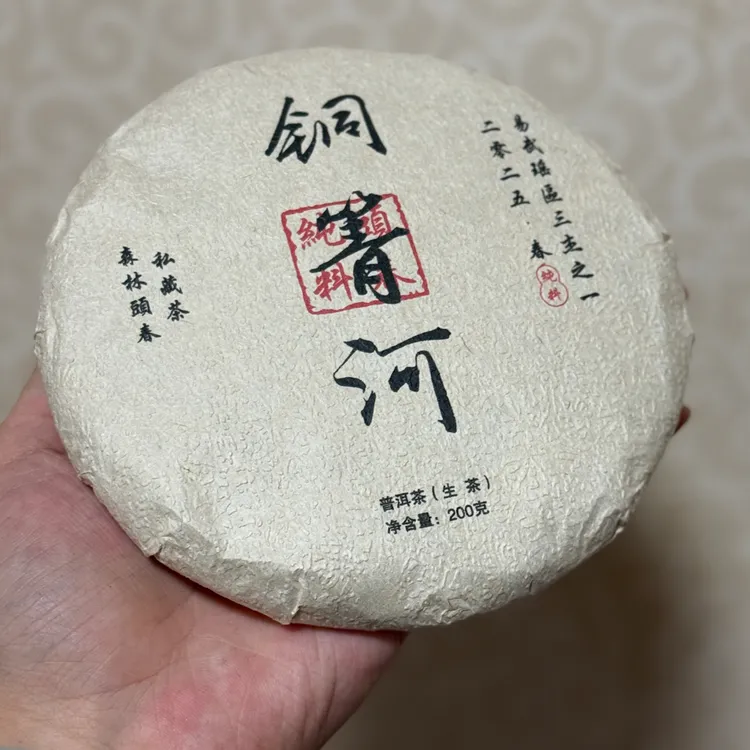 銅箐河
純料
頭
易武瑶區三杰之一
二零二五·春
純料
私藏茶
森林頭春
普洱茶(生 茶)
净含量：200克